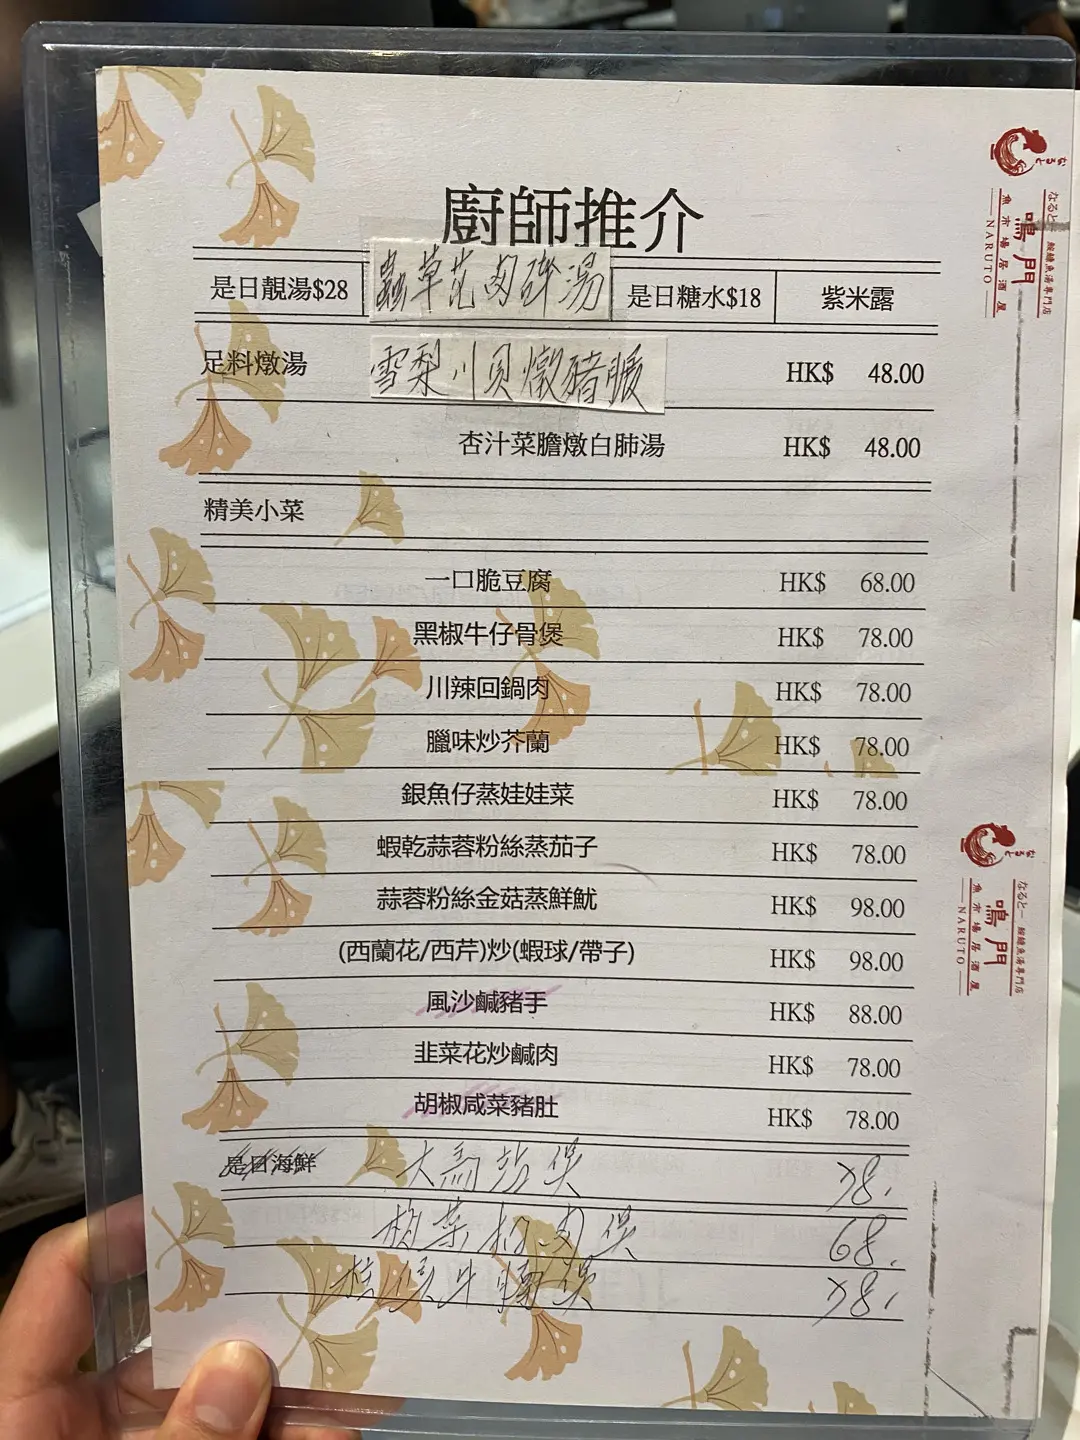 廚師推介
是日靚湯$28 蟲草花肉碎湯 是日糖水$18 紫米露
足料燉湯 雪梨川貝燉豬𦟌 HK$ 48.00
杏汁菜膽燉白肺湯 HK$ 48.00
精美小菜
一口脆豆腐 HK$ 68.00
黑椒牛仔骨煲 HK$ 78.00
川辣回鍋肉 HK$ 78.00
臘味炒芥蘭 HK$ 78.00
銀魚仔蒸娃娃菜 HK$ 78.00
蝦乾蒜蓉粉絲蒸茄子 HK$ 78.00
蒜蓉粉絲金菇蒸鮮魷 HK$ 98.00
(西蘭花/西芹)炒(蝦球/帶子) HK$ 98.00
風沙鹹豬手 HK$ 88.00
韭菜花炒鹹肉 HK$ 78.00
胡椒咸菜豬肚 HK$ 78.00
是日海鮮 大馬站煲 78.
梅菜扣肉煲 68.
柱侯牛腩煲 78.
なると 鰻鱺魚湯專門店
鳴門
魚市場居酒屋
NARUTO
なると 鰻鱺魚湯專門店
鳴門
魚市場居酒屋
NARUTO